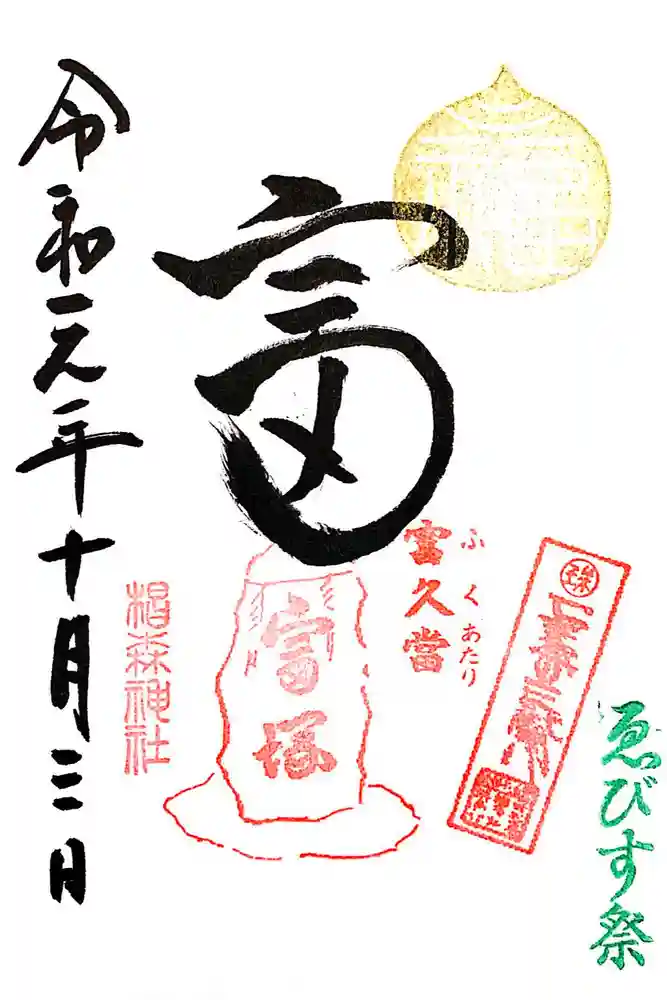 ゑびす祭
ふくあたり
富久當
富
富塚
椙森神社
令和元年十月三日